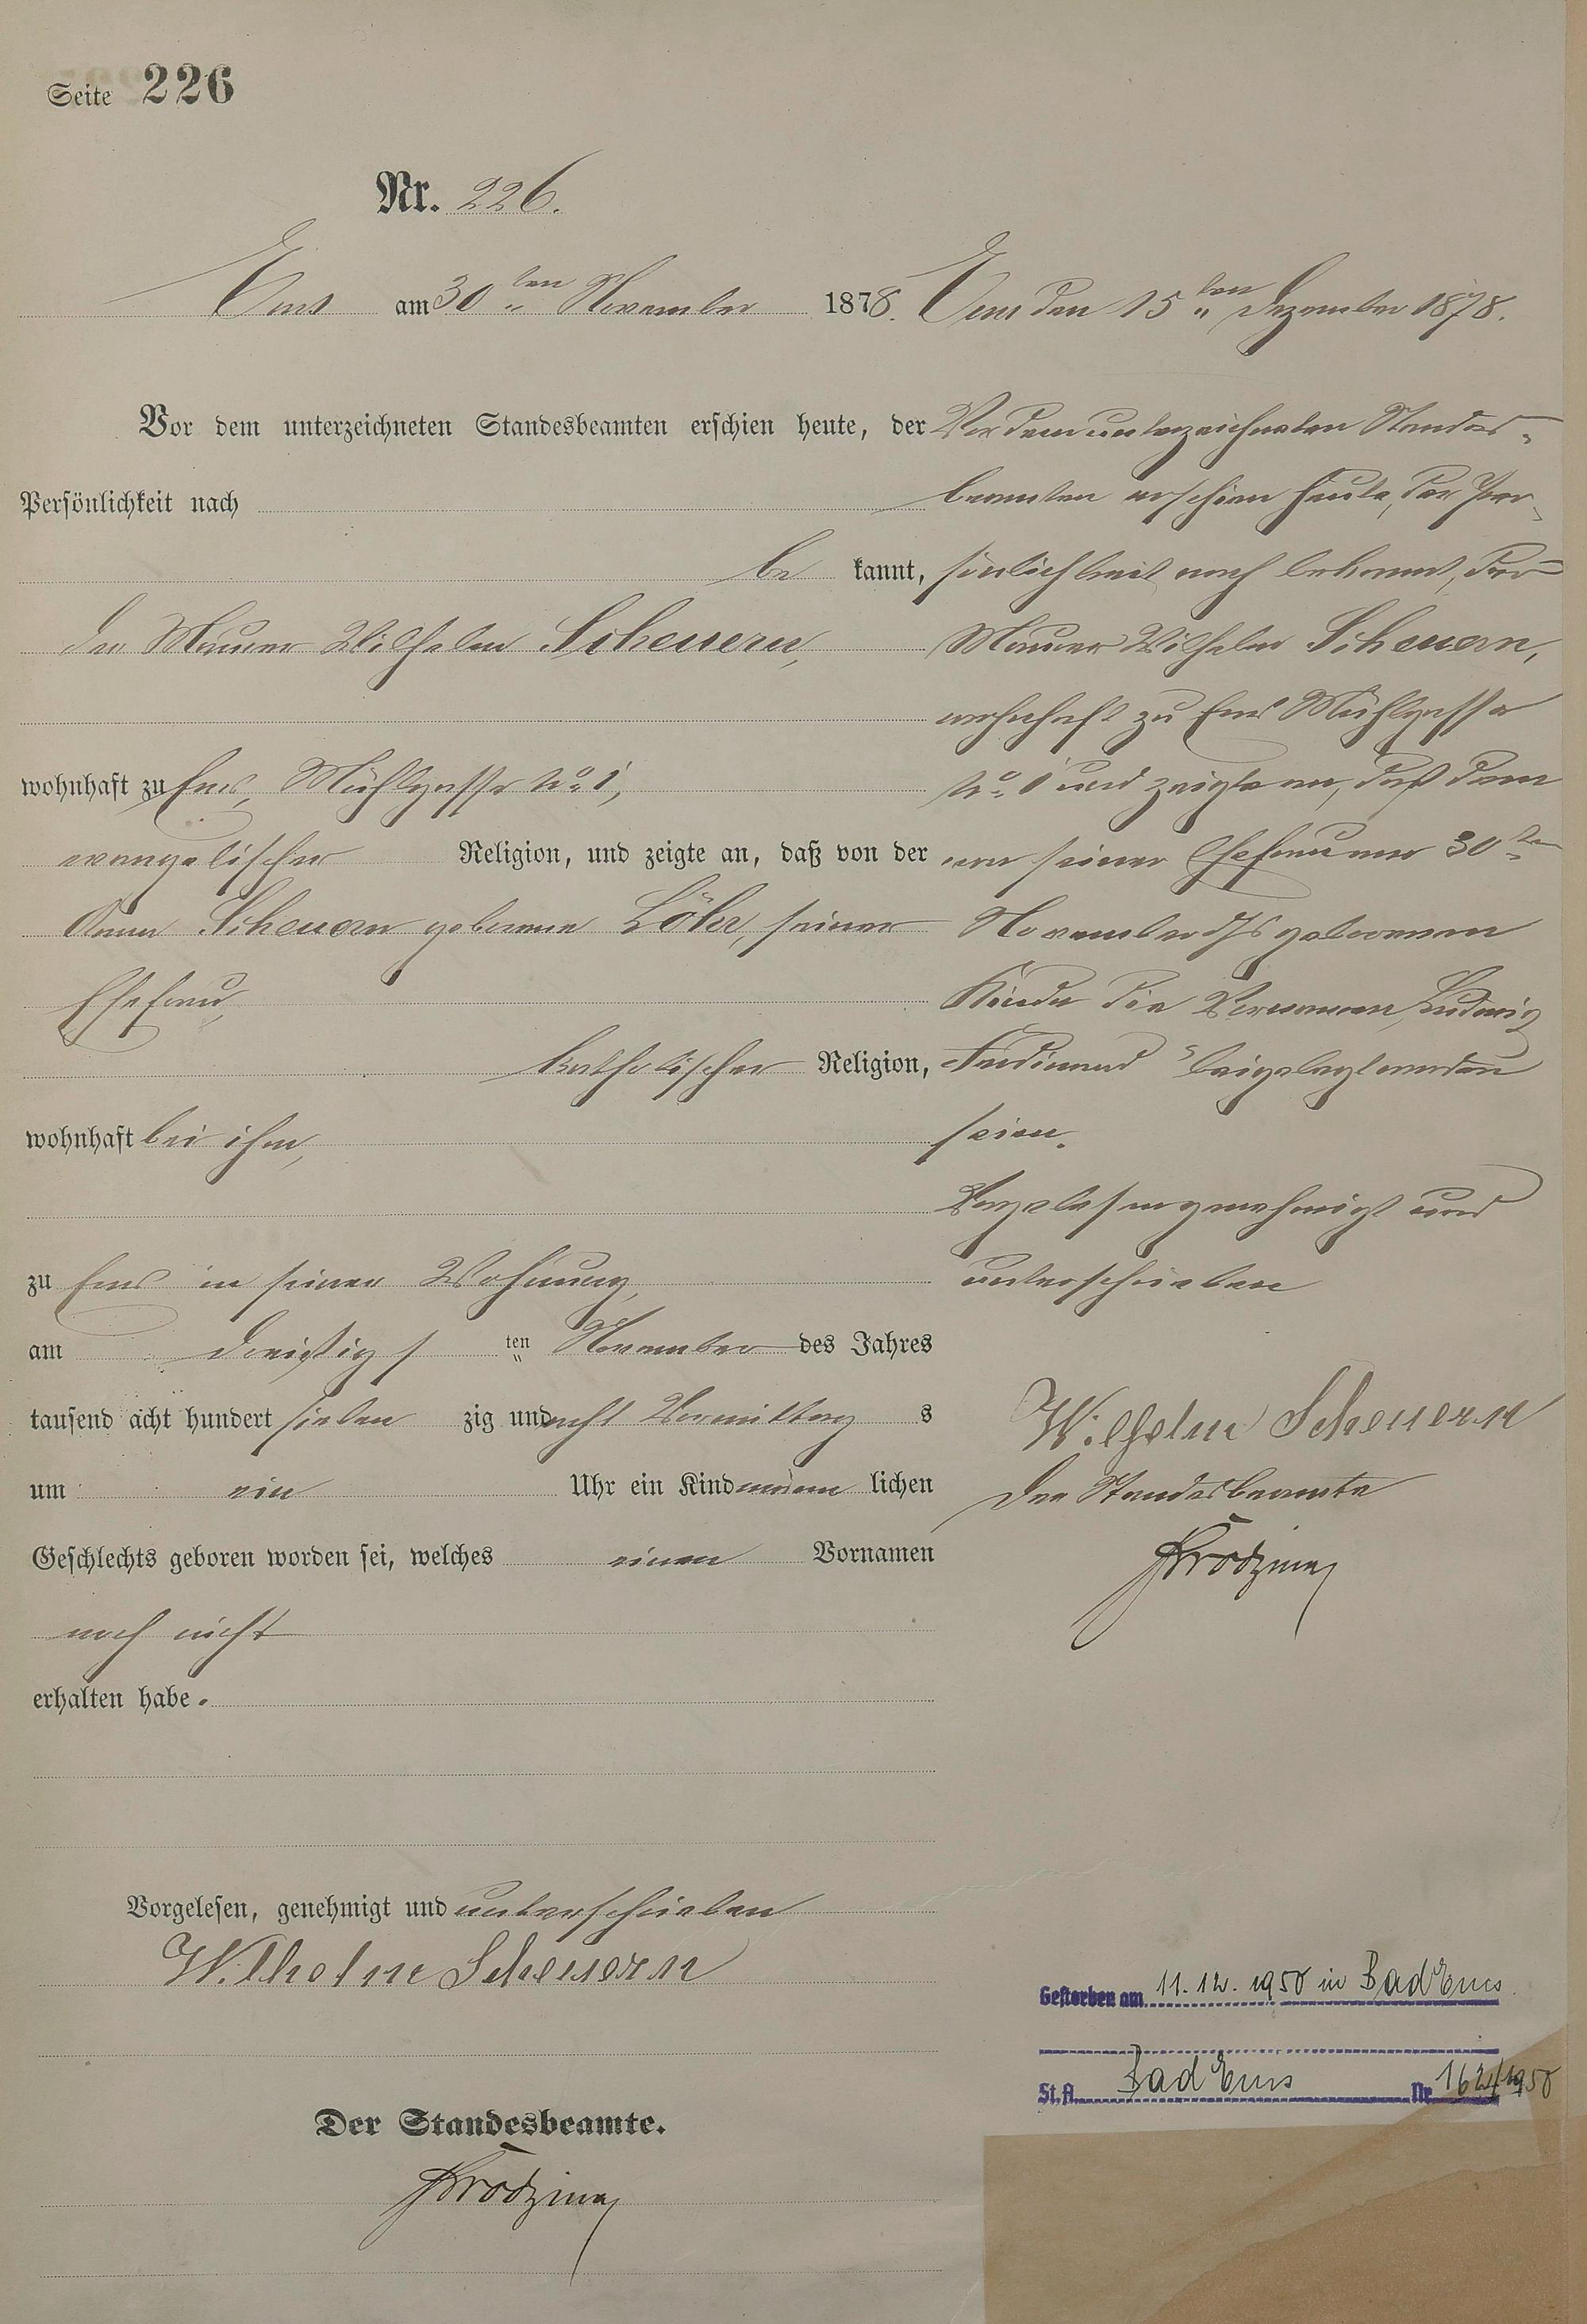 Seite 226
Nr. 226.
Ems am 30ten November 1878.
Vor dem unterzeichneten Standesbeamten erschien heute, der
Persönlichkeit nach
be kannt,
der Maurer Wilhelm Scheuern,
wohnhaft zu Ems, Mühlgasse No. 1,
evangelischer Religion, und zeigte an, daß von der
Anna Scheuern geborene Löhr, seiner
Ehefrau,
katholischer Religion,
wohnhaft bei ihm,
zu Ems in seiner Wohnung,
am dreißigs ten November des Jahres
tausend acht hundert sieben zig und acht Vormittag s
um ein Uhr ein Kind männ lichen
Geschlechts geboren worden sei, welches einen Vornamen
noch nicht
erhalten habe.
Vorgelesen, genehmigt und unterschrieben
Wilhelm Scheuern
Der Standesbeamte.
Ems den 15ten Dezember 1878.
Vor dem unterzeichneten Standes-
beamten erschien heute, der Per-
sönlichkeit nach bekannt, der
Maurer Wilhelm Scheuern,
wohnhaft zu Ems Mühlgasse
No. 1 und zeigte an, daß dem
von seiner Ehefrau am 30ten
November ds Js geborenen
Kinde die Vornamen, Ludwig
Ferdinand beigelegt worden
seien.
Vorgelesen genehmigt und
unterschrieben
Wilhelm Scheuern
Der Standesbeamte
Gestorben am 11.12.1950 in Bad Ems
St.A. Bad Ems Nr. 162/1950